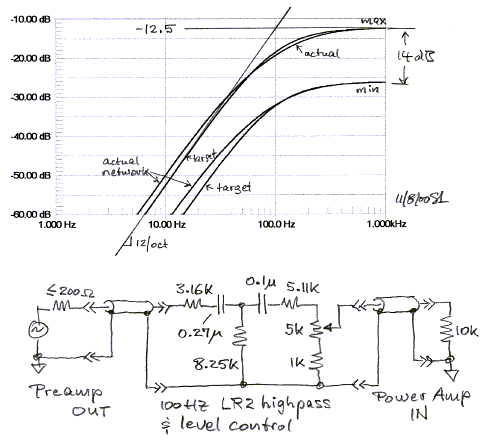 -10.00 dB
~-12.5
max
actual
14 dB
-20.00 dB
-30.00 dB
min
-40.00 dB
actual
network
target
-50.00 dB
target
11/8/00 SL
-60.00 dB
1.000 Hz
10.00 Hz
100.0 Hz
1.000kHz
12/oct
≤200Ω
3.16K
0.1µ
5.11K
0.27µ
5K
10k
8.25k
1K
Preamp
OUT
100 Hz LR2 highpass
& level control
Power Amp
IN